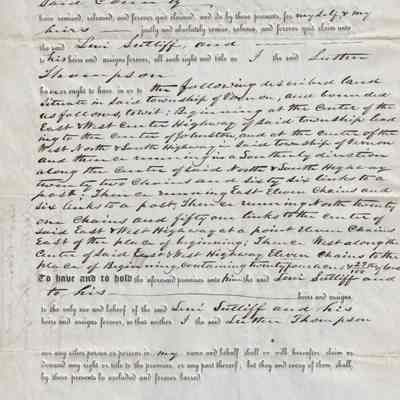 Said County
have remised, released, and forever quit claimed, and do by these presents, for my self & my
heirs justly and absolutely remise, release, and forever quit claim unto
the said Levi Sutliff, and
to his heirs and assigns forever, all such right and title as I the said Luther
Thompson
have or ought to have, in or to the following described land
Situate in Said township of Vernon, and bounded
as follows, to wit: Beginning at the Center of the
East & West Center Highway of Said township lead
ing to the Centre of Johnston, and at the centre of the
West North & South Highway in Said township of Vernon
and thence running in a Southerly direction
along the Center of Said North & South Highway
twenty two Chains and sixty six links to a
post, Thence running East Eleven Chains and
Six links to a post, Thence running North twenty
one Chains and fifty one links to the centre of
Said East & West Highway at a point Eleven Chains
East of the place of beginning; Thence West along the
Centre of Said East & West Highway Eleven Chains to the
place of Beginning, Containing twenty four acres &
To have and to hold the aforesaid premises unto him the said Levi Sutliff and
to his heirs and assigns,
to the only use and behoof of the said Levi Sutliff and his
heirs and assigns forever, so that neither I the said Luther Thompson
nor any other person or persons in my name and behalf, shall or will hereafter claim or
demand any right or title to the premises, or any part thereof; but they and every of them, shall,
by these presents be excluded and forever barred.